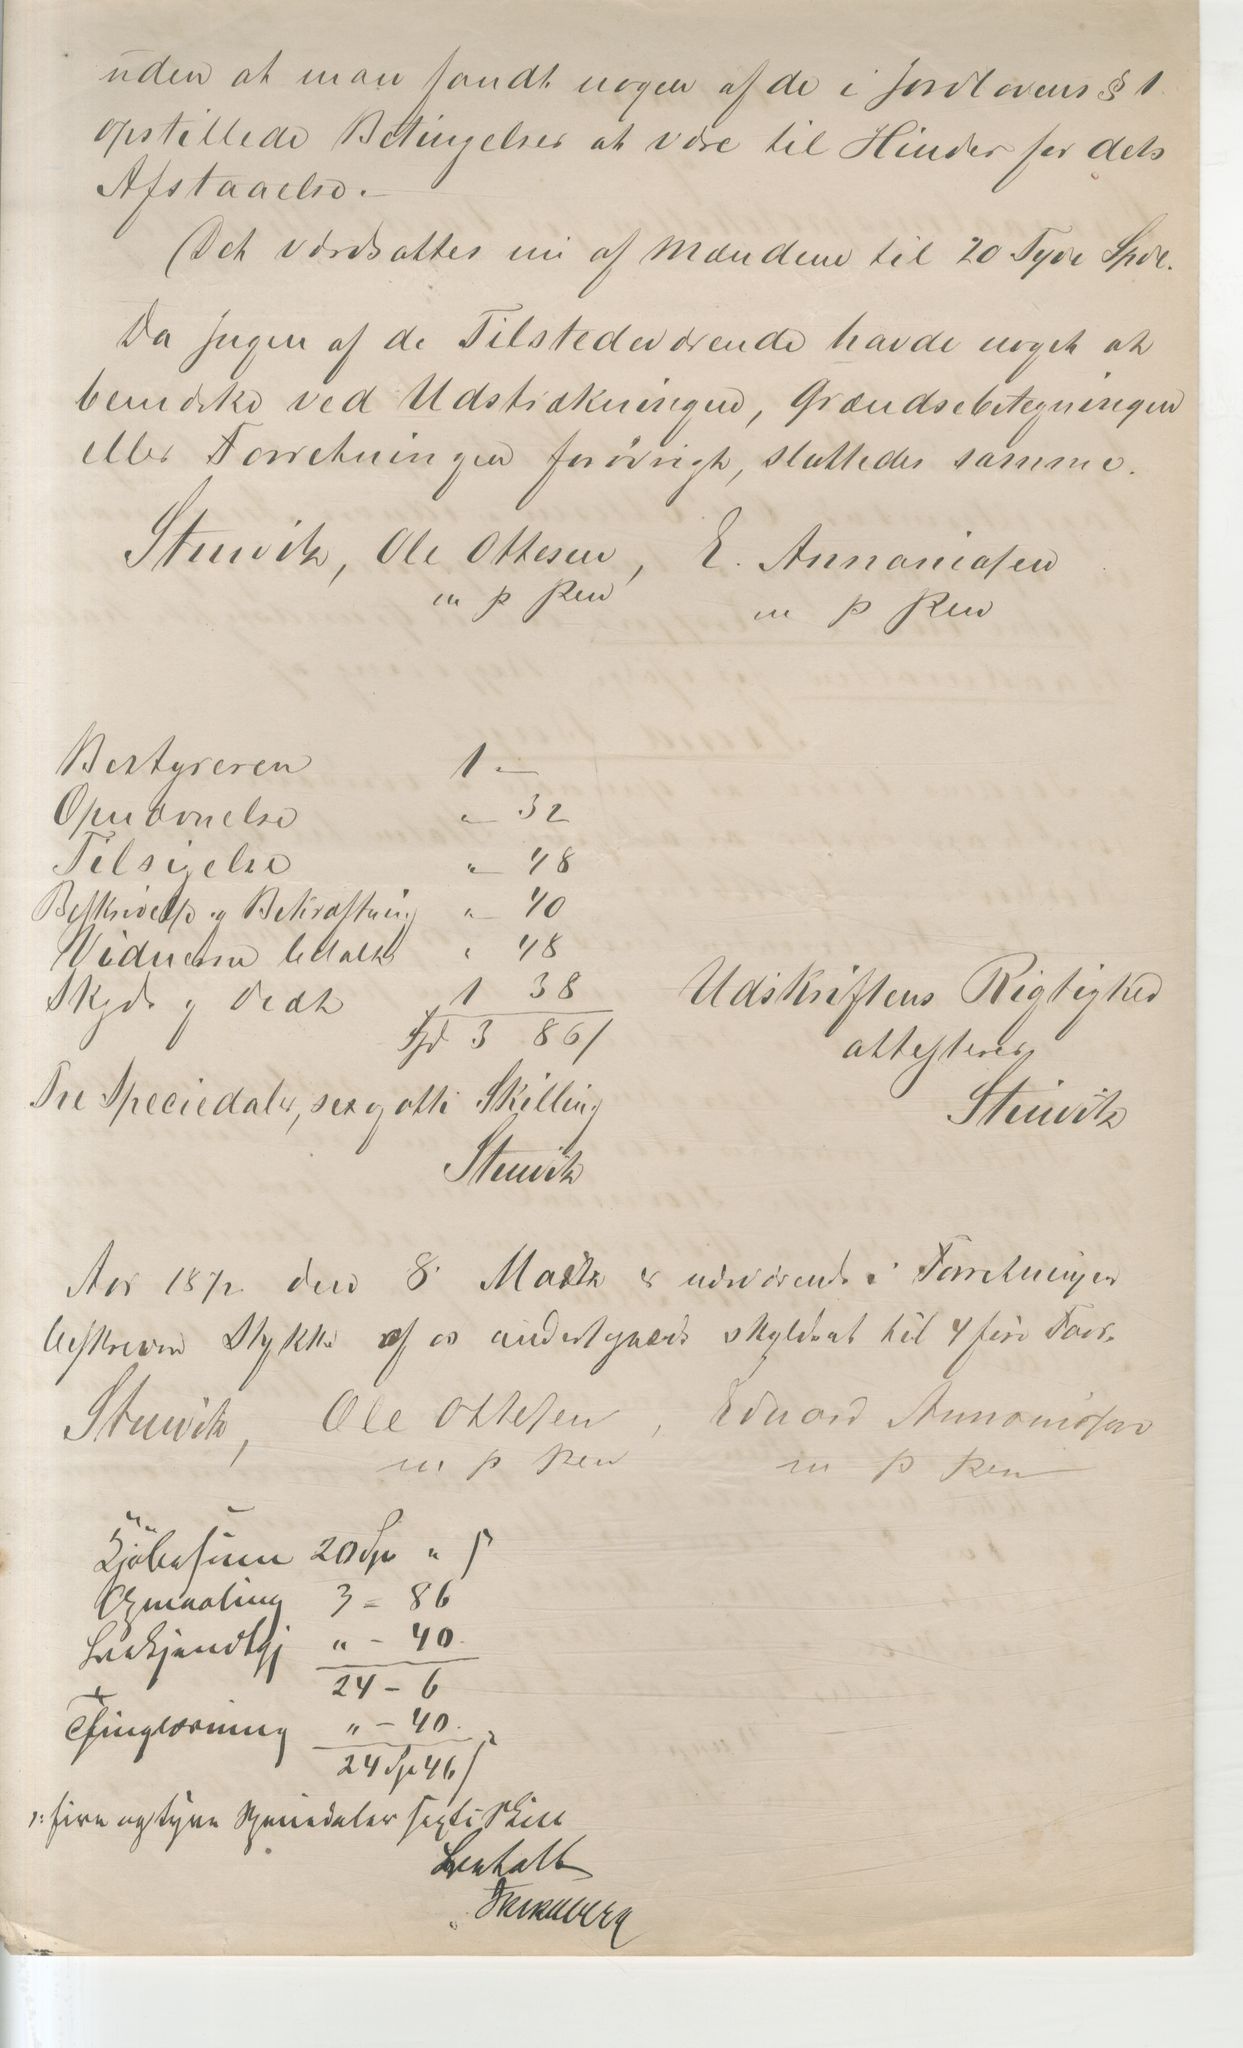 uden at man fandt nogen af de i Jordlovens § 1
opstillede Betingelser at være til Hinder for dets
Afstaaelse.-
Det værdsattes nu af Mændene til 20 Tyve Spdl.
Da Ingen af de Tilstedeværende havde noget at
bemærke ved Udstrækningen, Grændsebetegningen
eller Forretningen forøvrigt, sluttedes samme.
Stuwitz, Ole Ottesen, E. Annaniasen
m p Pen m p Pen
Bestyreren 1 -
Opnævnelse " - 32
Tilsigelse " - 48
Beskrivelse og Bekræftning " - 40
Vidnerne betalt " 48
Skyds og Diæt 1 38
Spd 3 86 /
Tre Speciedaler, sex og otti Skilling
Stuwitz
Udskriftens Rigtighed
attesterer
Stuwitz
Aar 1872 den 8 Martz er nærværende i Forretningen
beskreven Stykke af os undertegnede skyldsat til 4 fire Skill.
Stuwitz, Ole Ottesen, Eduard Annaniasen
m p Pen m p Pen
Kjöbesum 20 Sp " ʃ
Opmaaling 3 - 86
Bekjendtgj " - 40
24 - 6
Thinglæsning " - 40
24 Sp 46 ʃ
ɔ: fire og tyve Speciedaler Skill
Betalt